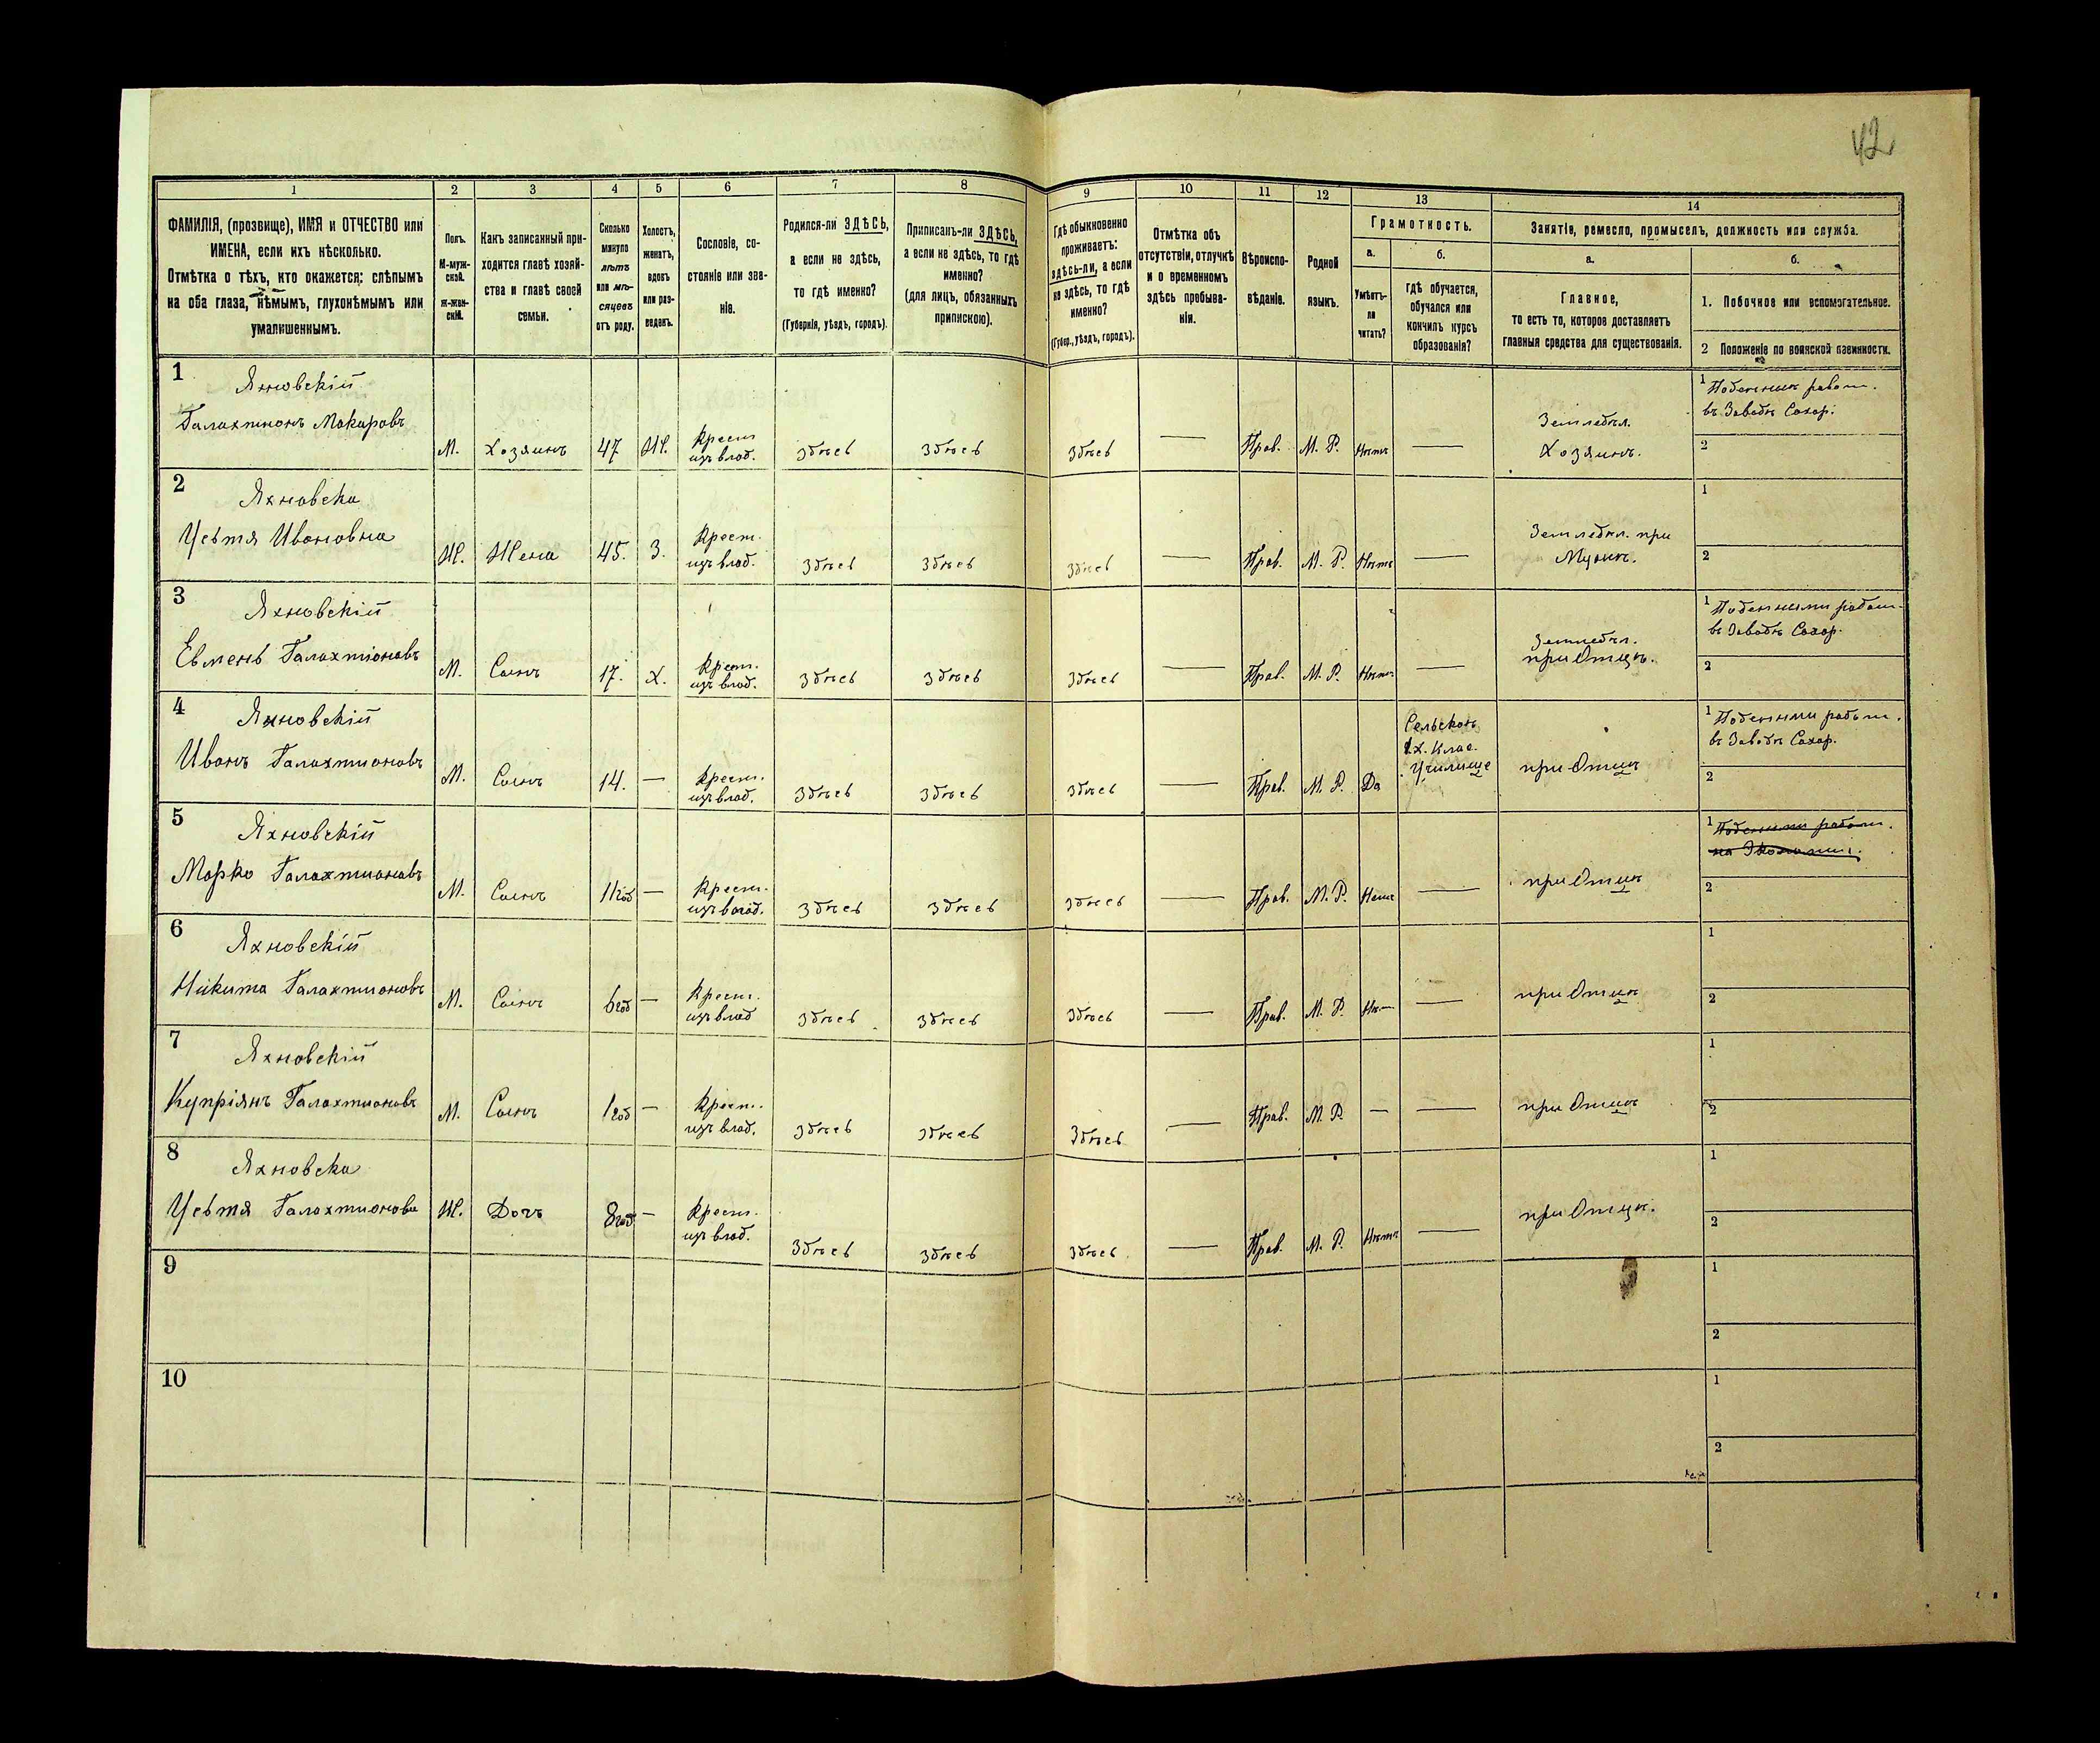 42
1 2 3 4 5 6 7 8 9 10 11 12 13 14
ФАМИЛІЯ, (прозвище), ИМЯ и ОТЧЕСТВО или
ИМЕНА, если ихъ нѣсколько.
Отмѣтка о тѣхъ, кто окажется: слѣпымъ
на оба глаза, нѣмымъ, глухонѣмымъ или
умалишеннымъ.
Полъ.
М-муж-
ской.
ж-жен-
скій.
Какъ записанный при-
ходится главѣ хозяй-
ства и главѣ своей
семьи.
Сколько
минуло
лѣтъ
или мѣ-
сяцевъ
отъ роду.
Холостъ,
женатъ,
вдовъ
или раз-
веденъ.
Сословіе, со-
стояніе или зва-
ніе.
Родился-ли ЗДѢСЬ,
а если не здѣсь,
то гдѣ именно?
(Губернія, уѣздъ, городъ).
Приписанъ-ли ЗДѢСЬ,
а если не здѣсь, то гдѣ
именно?
(для лицъ, обязанныхъ
припискою).
Гдѣ обыкновенно
проживаетъ:
здѣсь-ли, а если
не здѣсь, то гдѣ
именно?
(Губер., уѣздъ, городъ).
Отмѣтка объ
отсутствіи, отлучкѣ
и о временномъ
здѣсь пребыва-
ніи.
Вѣроиспо-
вѣданіе.
Родной
языкъ.
Грамотность.
а.
Умѣетъ-
ли
читать?
б.
гдѣ обучается,
обучался или
кончилъ курсъ
образованія?
Занятіе, ремесло, промыселъ, должность или служба.
а.
Главное,
то есть то, которое доставляетъ
главныя средства для существованія.
б.
1. Побочное или вспомогательное.
2 Положеніе по воинской повинности.
1
Яхновскій
Галахтионъ Макаровъ
М. Хозяинъ 47 Ж.
Крест.
изъ влад.
Здѣсь Здѣсь Здѣсь — Прав. М. Р. Нѣтъ —
Земледѣл.
Хозяинъ.
1 Поденным работ.
въ Заводѣ Сахар.
2
2
Яхновска
Устя Ивановна
Ж. Жена 45. З.
Крест.
изъ влад.
Здѣсь Здѣсь Здѣсь — Прав. М. Р. Нѣтъ —
Земледѣл. при
Мужѣ.
1
2
3
Яхновскій
Евменъ Галахтіоновъ
М. Сынъ 17. Х.
Крест.
изъ влад.
Здѣсь Здѣсь Здѣсь — Прав. М. Р. Нѣтъ —
Земледѣл.
при Отцѣ.
1 Поденными работ.
въ Заводѣ Сахар.
2
4
Яхновскій
Иванъ Галахтионовъ
М. Сынъ 14. —
Крест.
изъ влад.
Здѣсь Здѣсь Здѣсь — Прав. М. Р. Да
Сельскомъ
1 х. Клас.
Училище
при Отцѣ
1 Поденными работ.
въ Заводѣ Сахар.
2
5
Яхновскій
Марко Галахтионовъ
М. Сынъ 11 год —
Крест.
изъ влад.
Здѣсь Здѣсь Здѣсь — Прав. М. Р. Нѣтъ —
при Отцѣ
1 Поденными работ.
на Экономии.
2
6
Яхновскій
Никита Галахтионовъ
М. Сынъ 6 год —
Крест.
изъ влад
Здѣсь Здѣсь Здѣсь — Прав. М. Р. Нѣт —
при Отцѣ
1
2
7
Яхновскій
Купріянъ Галахтионовъ
М. Сынъ 1 год —
Крест.
изъ влад.
Здѣсь Здѣсь Здѣсь — Прав. М. Р. — —
при Отцѣ
1
2
8
Яхновска
Устя Галахтионова
Ж. Дочъ 8 год —
Крест.
изъ влад.
Здѣсь Здѣсь Здѣсь — Прав. М. Р. Нѣтъ —
при Отцѣ.
1
2
9
1
2
10
1
2